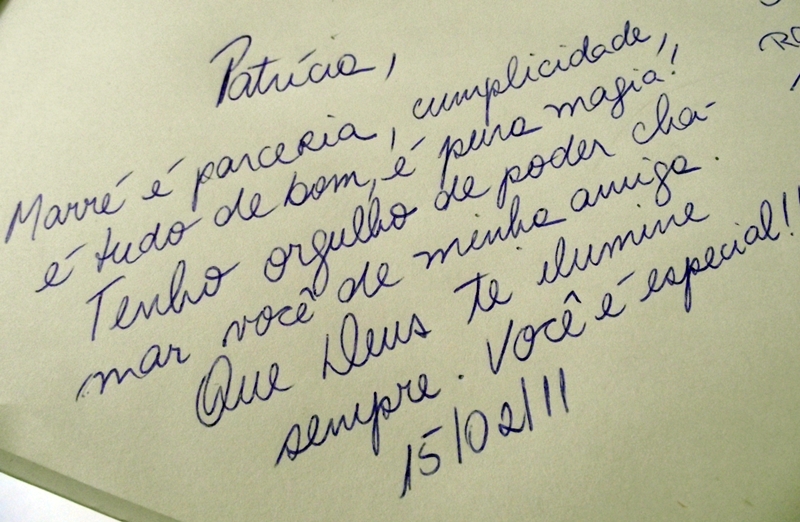 Patrícia,
Marré é parceria, cumplicidade,
é tudo de bom, é pura magia!
Tenho orgulho de poder cha-
mar você de minha amiga.
Que Deus te ilumine
sempre. Você é especial!!
15/02/11